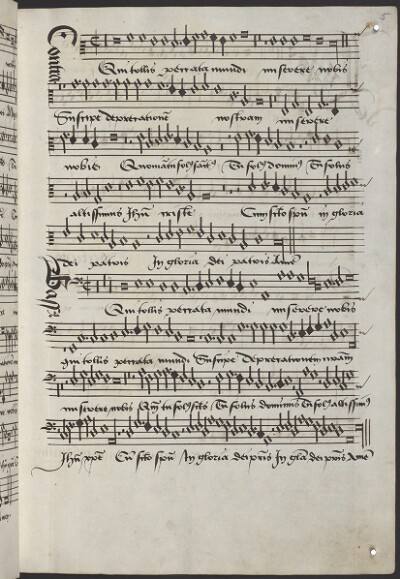 5
Contra
Qui tollis peccata mundi miserere nobis
Suscipe deprecationē nostram miserere
nobis Quoniā tu solꝰ sanctꝰ Tu solꝰ dominꝰ Tu solus
altissimus Jhū criste Cum sācto spū in gloria
dei patris In gloria dei patris Amē
Bassꝰ
Qui tollis peccata mundi miserere nobis
qui tollis peccata mundi Suscipe deprecationem nrām
miserere nobis Qm̄ tu solꝰ sctūs Tu solus dominus Tu solꝰ altissimꝰ
Jhū xpē Cū scto spū In gloria dei pris In glā dei pris Amē